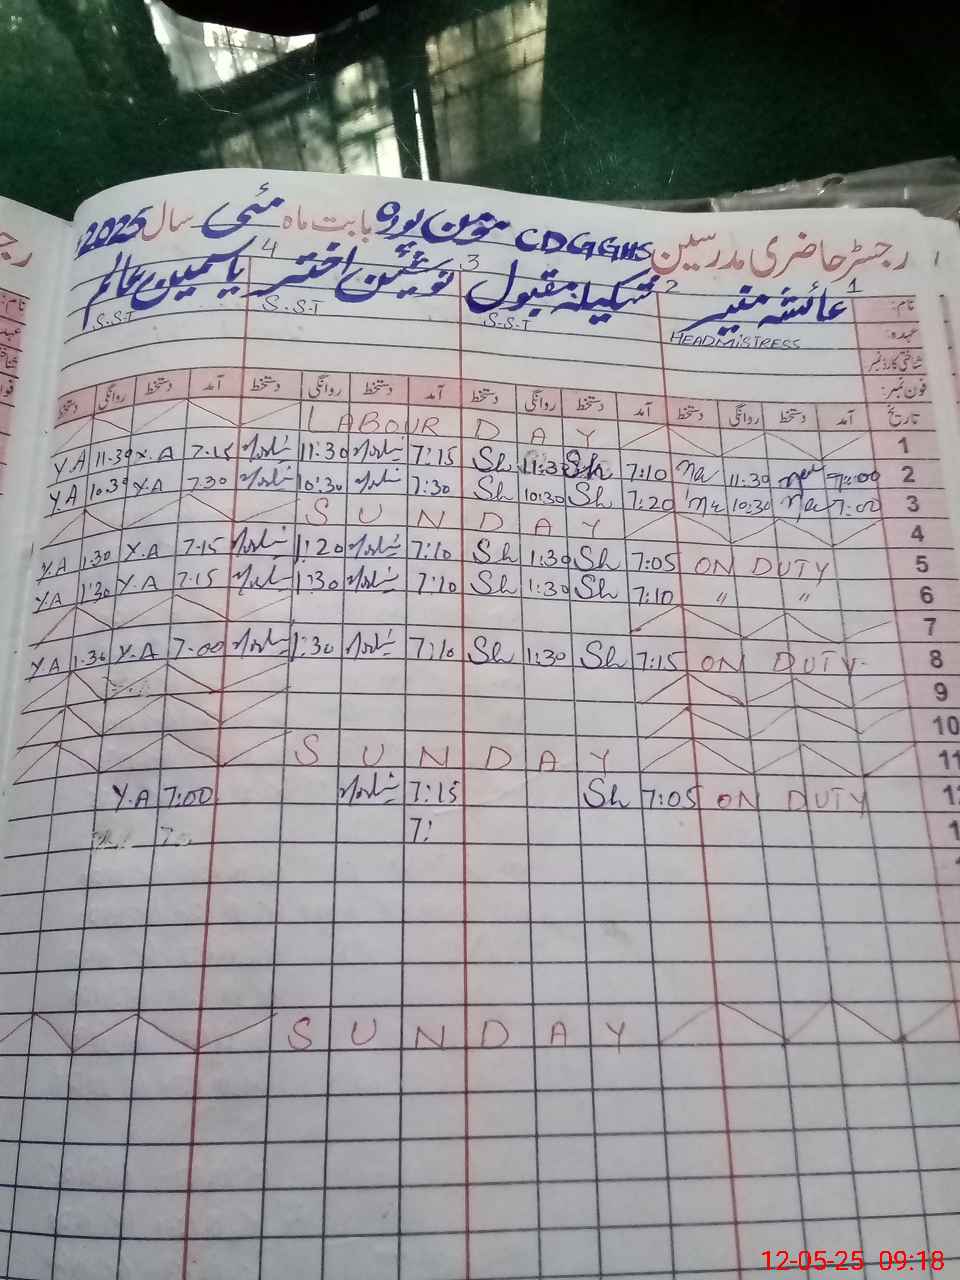 رجسٹر حاضری مدرسین CDGGHS مومن پورہ بابت ماہ مئی سال 2025
1 2 3 4
نام: عائشہ منیر شکیلہ مقبول نوشین اختر یاسمین عالم
عہدہ: HEADMISTRESS S.S.T S.S.T S.S.T
شناختی کارڈ نمبر
فون نمبر:
تاریخ آمد دستخط روانگی دستخط آمد دستخط روانگی دستخط آمد دستخط روانگی دستخط آمد دستخط روانگی دستخط
1 LABOUR DAY
2 7:00 11:30 7:10 Sh 11:30 Sh 7:15 11:30 7.15 Y.A 11.30 Y.A
3 7:00 10:30 7:20 Sh 10:30 Sh 7:30 10:30 7.30 Y.A 10.30 Y.A
4 SUNDAY
5 ON DUTY 7:05 Sh 1:30 Sh 7:10 1:20 7.15 Y.A 1.30 Y.A
6 " " 7:10 Sh 1:30 Sh 7:10 1:30 7.15 Y.A 1:30 Y.A
7
8 ON DUTY 7:15 Sh 1:30 Sh 7:10 1:30 7.00 Y.A 1.30 Y.A
9
10
11 SUNDAY
12 ON DUTY 7:05 Sh 7:15 7:00 Y.A
7:
SUNDAY
12-05-25 09:18